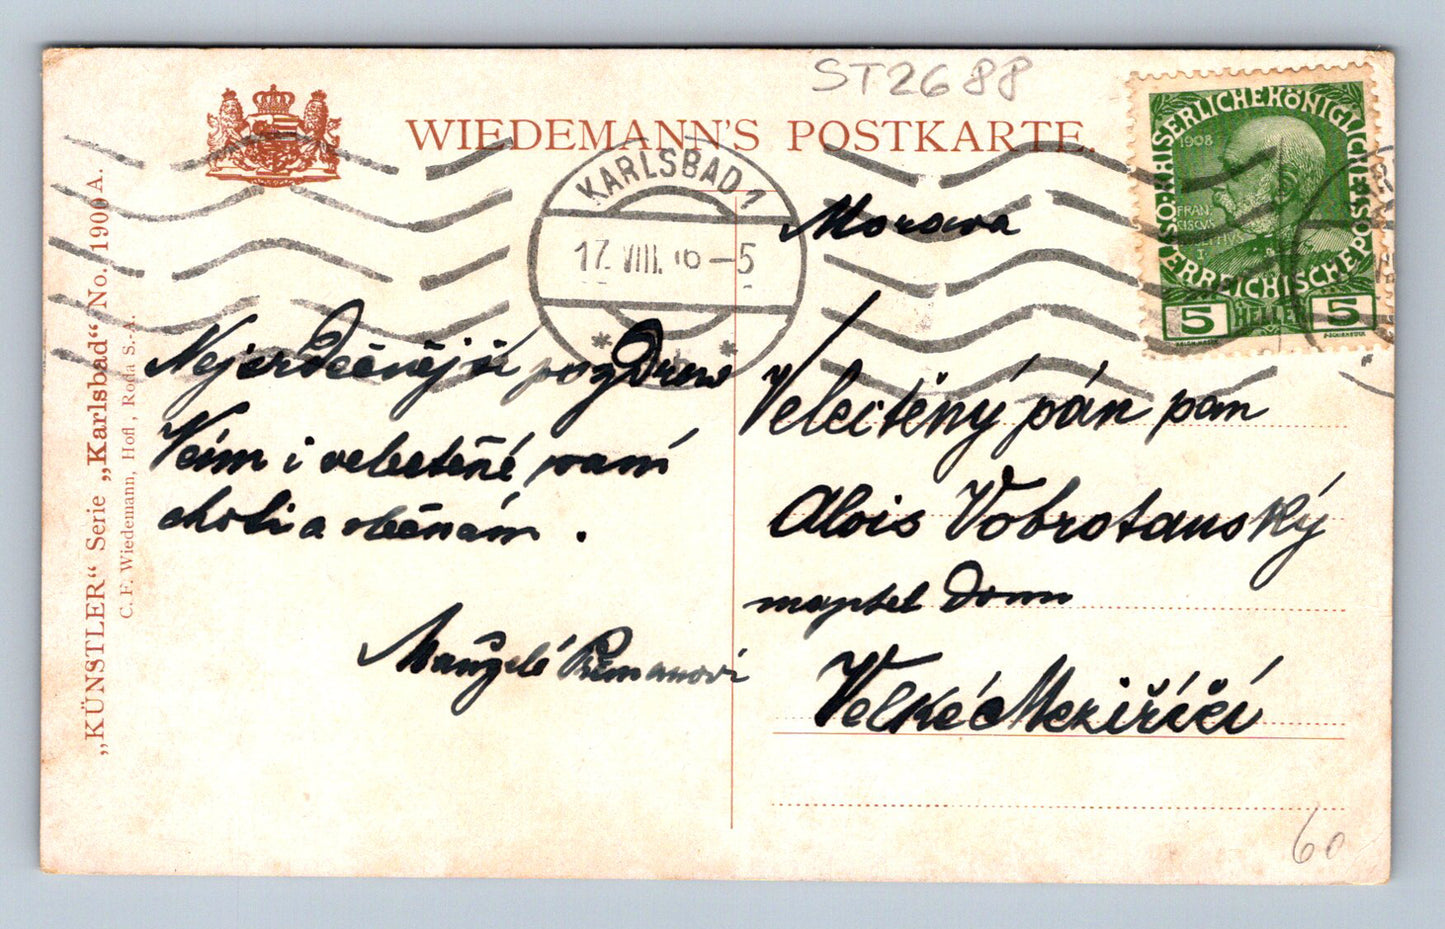 ST2688
WIEDEMANN'S POSTKARTE.
KARLSBAD 1
17. VIII. 10 –5
* *
K.K. ÖSTERREICHISCHE POST
KAISERLICHE KÖNIGLICHE ÖSTERREICHISCHE POST
1908
FRAN·
CISCVS
I
5 HELLER 5
„KÜNSTLER“ Serie „Karlsbad“ No. 1900 A.
C. F. Wiedemann, Hofl, Roda S.-A.
Nejsrdečnější pozdrav
Vám i velectěné paní
choti a
Manželé
Morava
Velectěný pán pan
Alois Vobrotanský
Velké Meziříčí
60